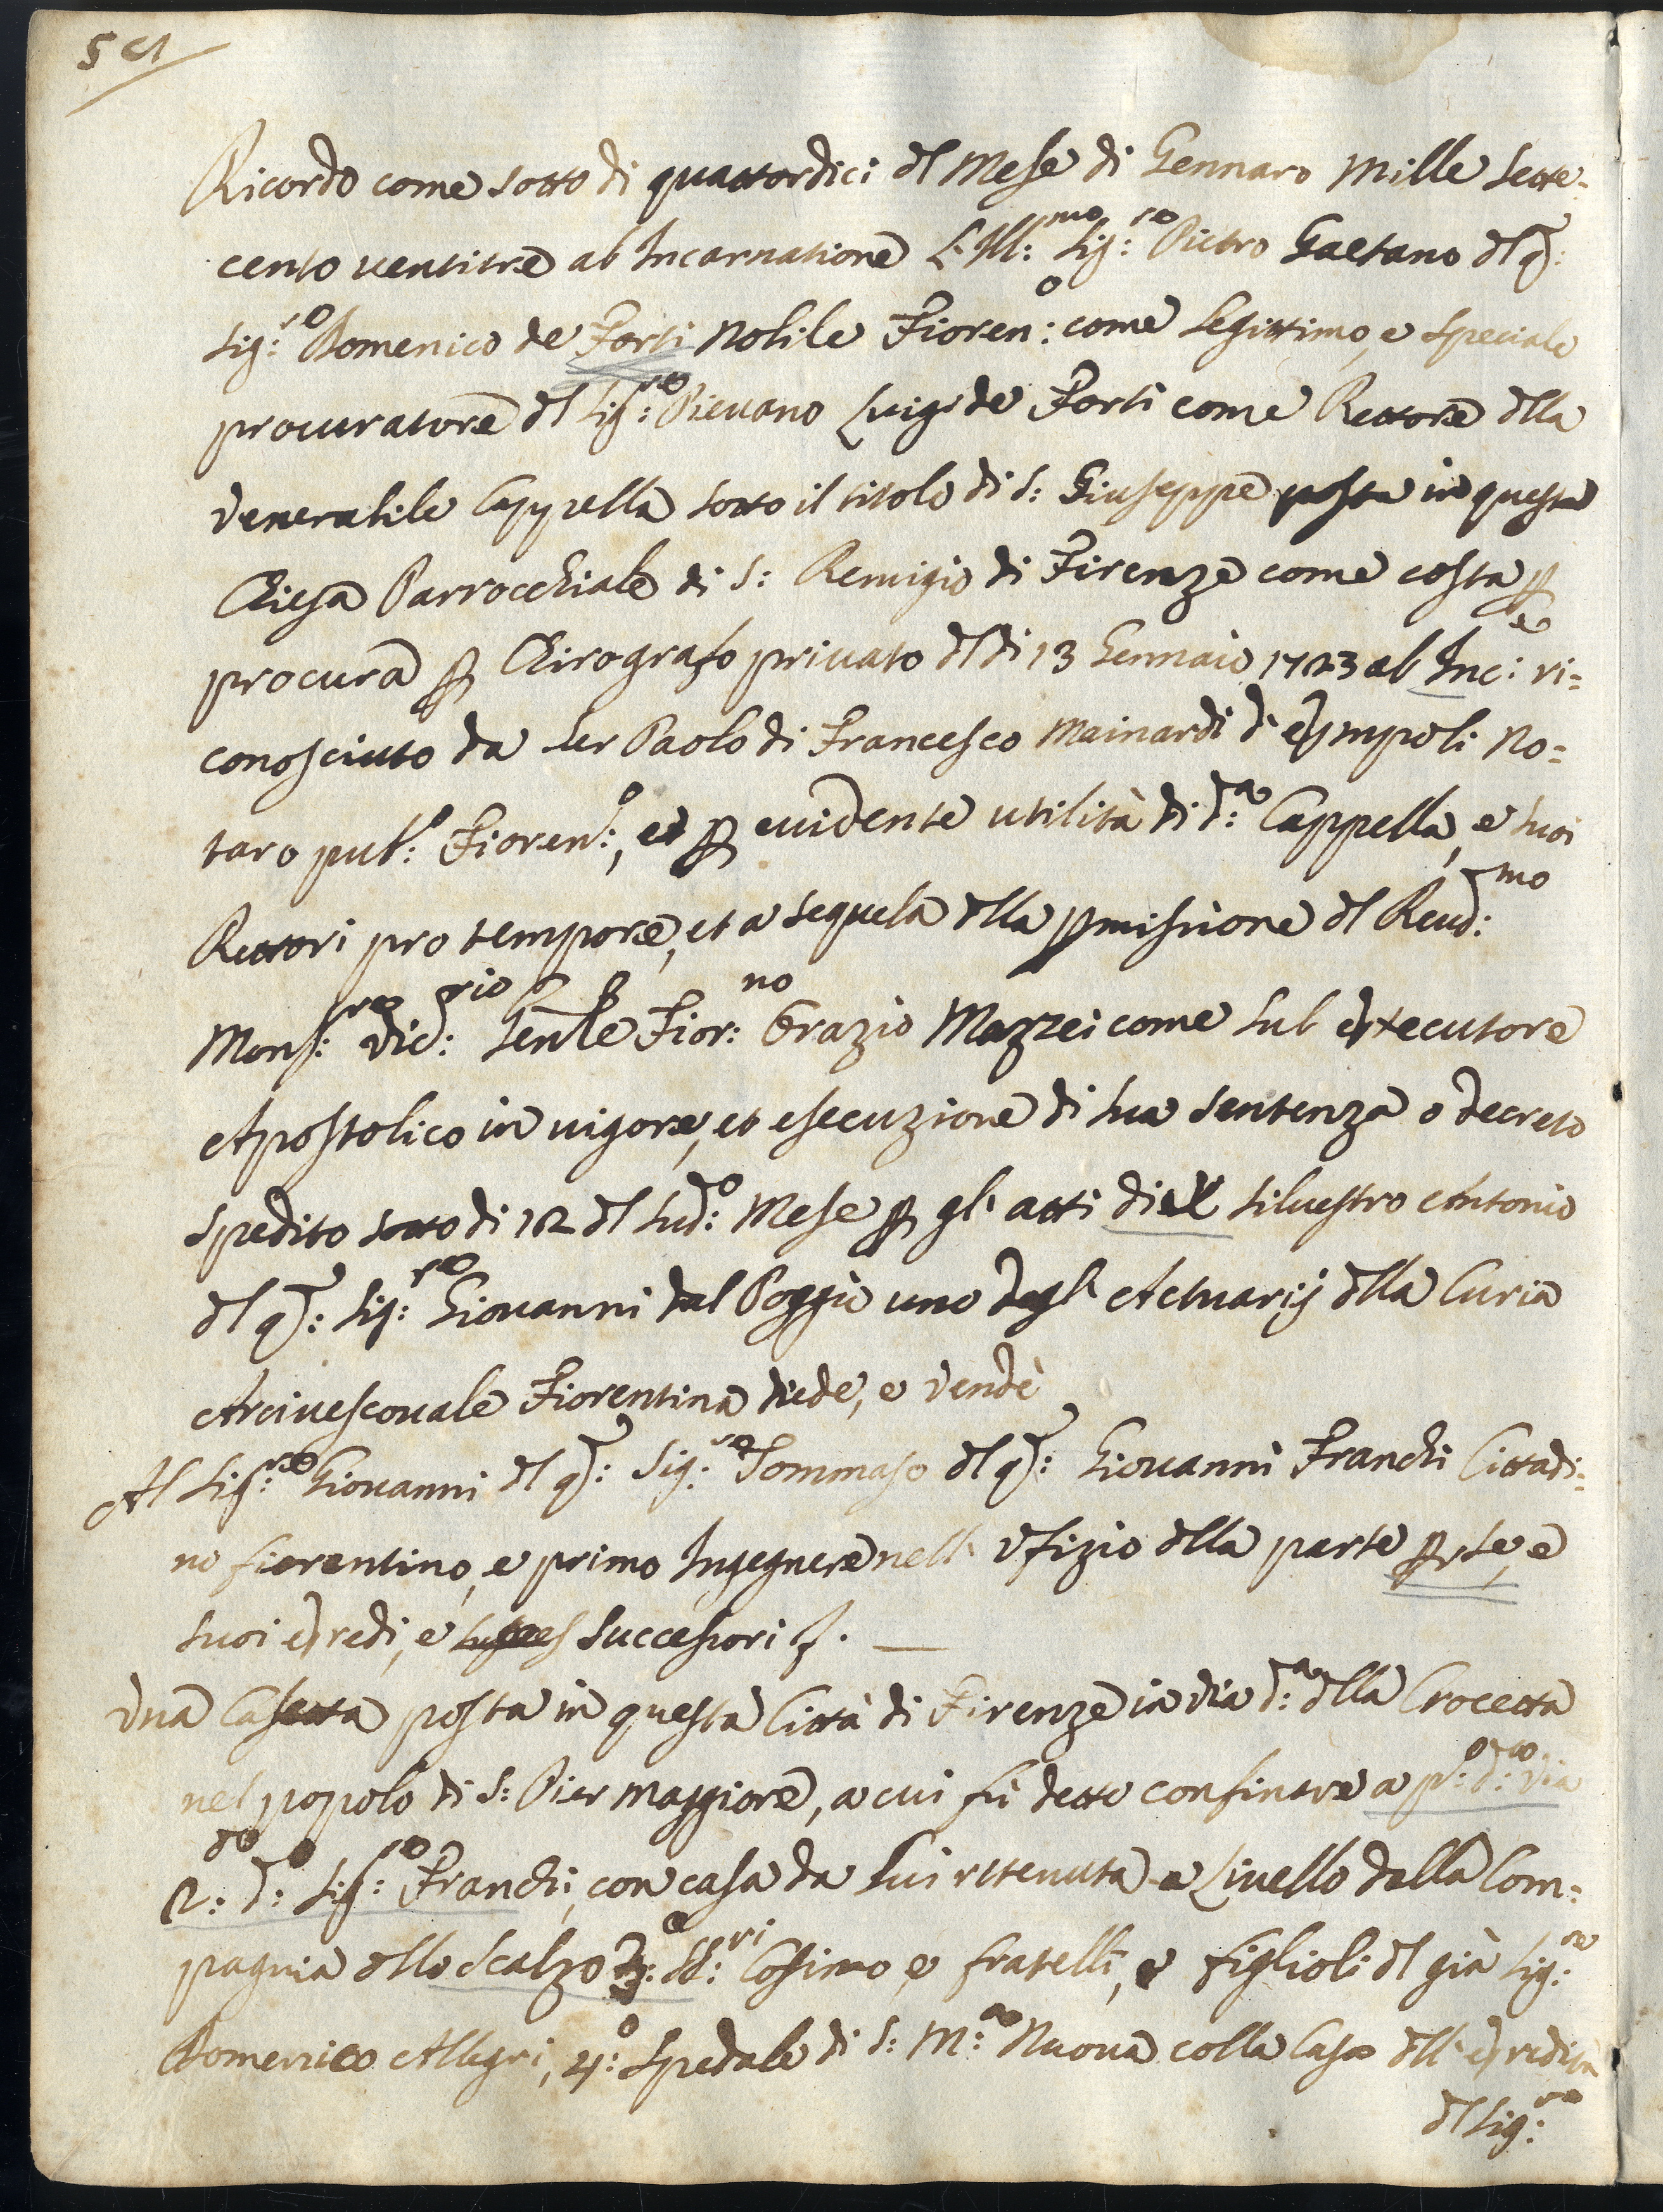 Ricordo come sotto di quattordici dl Mese di Gennaro Mille Sette=
cento ventitre ab Incarnatione L'Ill:mo Sig:re Pietro Gaetano dl q:
Sig:re Domenico de Forti Nobile Fioren:o come legittimo, e speciale
procuratore dl Sig:re Pievano Luigi de Forti come Rettore dlla
venerabile Cappella sotto il titolo di S: Giuseppe posta in questa
Chiesa Parrocchiale di S: Remigio di Firenze come costa p
procura p Chirografo privato dl di 13 Gennaio 1723 ab Inc:e ri=
conosciuto da Ser Paolo di Francesco Mainardi d'Empoli No=
taro pub:o Fioren:o, et p evidente utilità di d:a Cappella, e suoi
Rettori pro tempore, et a sequela dlla pmissione dl Reud:mo
Mons:re Vic:rio Genle Fior:no Orazio Mazzei come sub executore
Apostolico in vigore, et esecuzione di sua sentenza o decreto
spedito sotto di 12 dl sud:o Mese p gli atti di Silvestro Antonio
dl q: Sig:re Giovanni dal Poggio uno degli Actuarij dlla Curia
Arcivescovale Fiorentina diede, e vendè
Al Sig:re Giovanni dl q: Sig:re Tommaso dl q: Giovanni Franchi Cittadi=
no fiorentino, e primo Ingegnere nell' Ufizio dlla parte p se, e
suoi Eredi, e Successori
Una Casetta posta in questa Città di Firenze in via d:a dlla Crocetta
nel popolo di S: Pier Maggiore, a cui fù detto confinare a p:o d:a via
2:do d:o Sig:re Franchi, con casa da lui ritenuta a Livello dalla Com=
pagnia dllo Scalzo 3:o SS:ri Cosimo, e fratelli, e figlioli dl già Sig:re
Domenico Allegri, 4:o Spedale di S: M:a Nuova colla Casa dll' Eredità
dl Sig:re